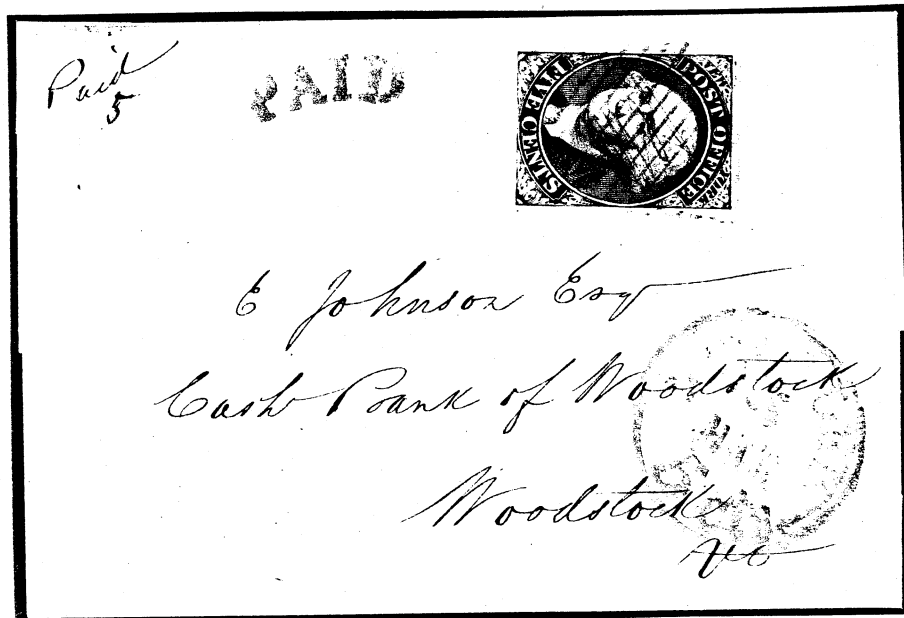 Paid
5
PAID
POST OFFICE
FIVE CENTS
E Johnson Esq
Cash Bank of Woodstock
Woodstock
Vt